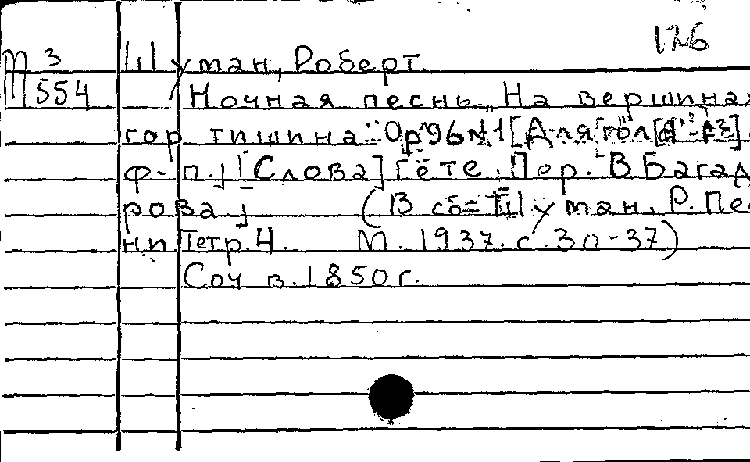 126
М 3 Шуман, Роберт
554 Ночная песнь „На вершинах
гор тишина" Ор 96 №1 [Для гол
ф-п.] [Слова] Гёте. Пер. В Багад
рова] (В сб= Шуман, Р. Пес
ни Тетр. 4. М. 1937. с. 3 -37)
Соч в. 1850 г.